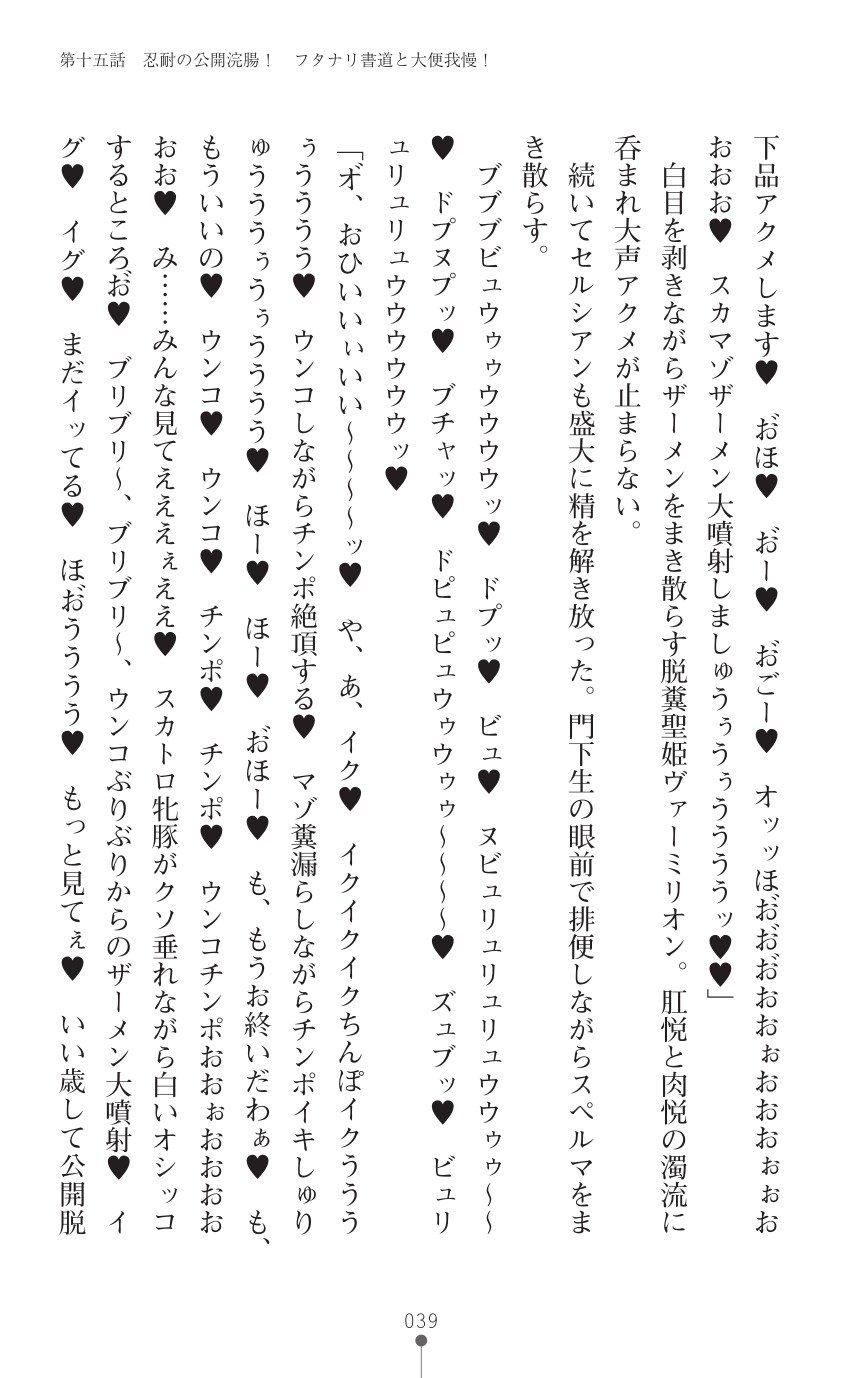 第十五話　忍耐の公開浣腸！　フタナリ書道と大便我慢！
下品アクメします♥　お゛ほ♥　お゛ー♥　お゛ごー♥　オッッほお゛お゛お゛おおぉおおおぉぉお
おおお♥　スカマゾザーメン大噴射しましゅうぅうぅうううッ♥♥」
　白目を剥きながらザーメンをまき散らす脱糞聖姫ヴァーミリオン。肛悦と肉悦の濁流に
呑まれ大声アクメが止まらない。
　続いてセルシアンも盛大に精を解き放った。門下生の眼前で排便しながらスペルマをま
き散らす。
　ブブブビュウゥゥウウウウッ♥　ドプッ♥　ビュ♥　ヌビュリュリュリュウウゥゥ～～
♥　ドプヌプッ♥　ブチャッ♥　ドピュピュウゥウゥゥ～～～～♥　ズュブッ♥　ビュリ
ュリュリュウウウウウウッ♥
「オ゛、おひいいぃいい～～～～ッ♥　や、あ、イク♥　イクイクイクちんぽイクううう
ぅうううう♥　ウンコしながらチンポ絶頂する♥　マゾ糞漏らしながらチンポイキしゅり
ゅうううぅうぅうううう♥　ほー♥　ほー♥　お゛ほー♥　も、もうお終いだわぁ♥　も、
もういいの♥　ウンコ♥　ウンコ♥　チンポ♥　チンポ♥　ウンコチンポおおぉおおおお
おお♥　み……みんな見てえええぇええ♥　スカトロ牝豚がクソ垂れながら白いオシッコ
するところお゛♥　ブリブリ～、ブリブリ～、ウンコぶりぶりからのザーメン大噴射♥　イ
グ♥　イグ♥　まだイッてる♥　ほお゛うううう♥　もっと見てぇ♥　いい歳して公開脱
039